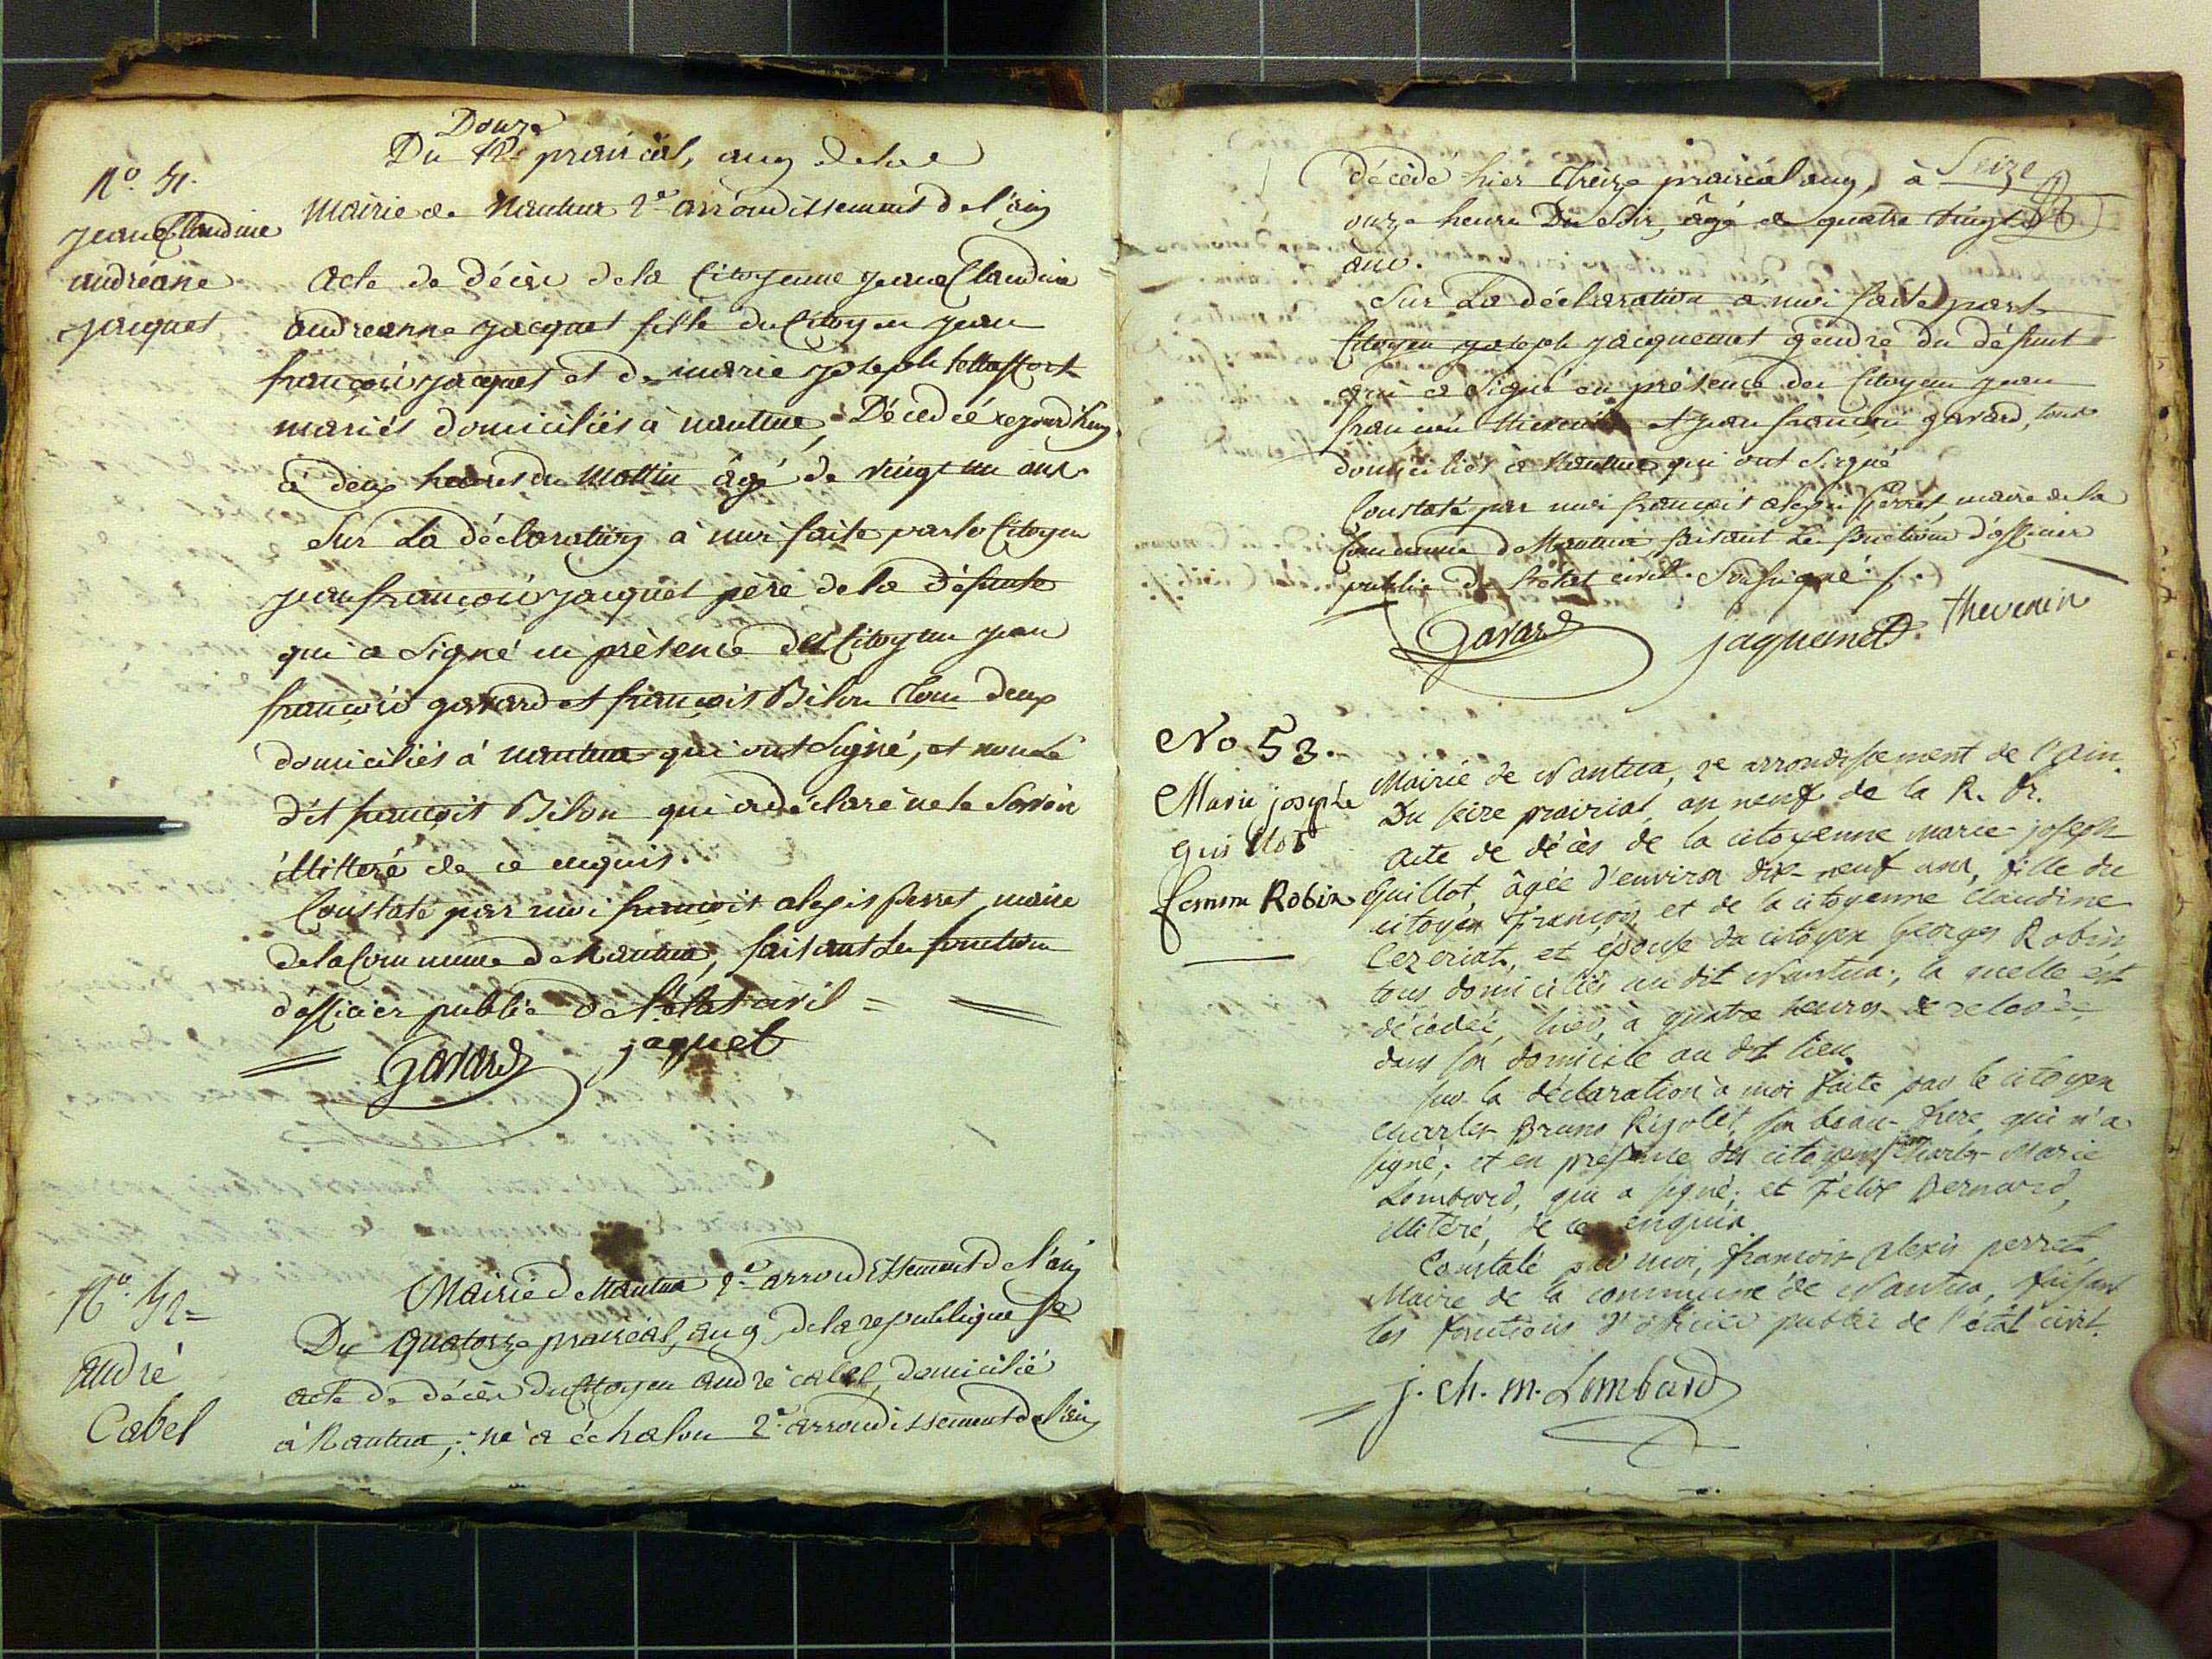 Douze
Du 12e prairial, an 9 de la
No. 51.
Jeanne Claudine
andréane
jacquet
Mairie de Nantua 2e arrondissement de l'ain
Acte de décès de la Citoyenne jeanne Claudine
andreanne jacquet fille du Citoyen jean
françois jacquet et de marie joseph
mariés domiciliés à nantua, Décedée ce jourd'huy
à deux heures du Mattin âgé de vingt un ans
Sur la déclaration à moi faite par le Citoyen
jean françois jacquet père de la défunte
qui a signé en présence des Citoyens jean
françois gavard et françois Bilon tous deux
domiciliés à nantua qui ont signé, et non le
dit françois Bilon qui a déclaré ne le savoir
illitteré de ce enquis.
Constaté par moi françois alexis perret maire
de la Commune de Nantua, faisant les fonctions
d'officier public de l'état civil =
Gavard jaquet
No. 52=
andré
Cabel
Mairie de Nantua 2e arrondissement de l'ain
Du quatorze prairial, an 9 de la republique
acte de décès du Citoyen andré cabel, domicilié
à Nantua; né à échalon 2e arrondissement de l'ain
décédé hier treize prairial an 9, à Seize
onze heures du soir, âgé de quatre vingt
ans.
Sur la déclaration a moi faite par le
Citoyen joseph jacquemet gendre du défunt
qui a signé en présence des Citoyens jean
françois thevenin et jean françois gavard, tous
domiciliés à Nantua qui ont signé
Constaté par moi françois alexis Perret, maire de la
Commune de Nantua faisant les fonctions d'officier
public de l'état civil. soussigné
Gavard jaquemet thevenin
No 53.
Marie josephe
guillot
femme Robin
Mairie de Nantua, 2e arrondissement de l'Ain.
Du seize prairial, an neuf de la R. fr.
Acte de décès de la citoyenne marie-joseph
Guillot, âgée d'environ dix-neuf ans, fille du
citoyen François et de la citoyenne Claudine
Cezeriat, et épouse du citoyen Georges Robin,
tous domiciliés au dit Nantua; la quelle est
décédée, hier, à quatre heures de relevée,
dans son domicile au dit lieu.
sur la déclaration à moi faite par le citoyen
Charles Bruno Rigolet, son beau-frere, qui n'a
signé; et en présence des citoyens jean Charles-Marie
Lombard, qui a signé; et Felix Bernard,
illitéré, de ce enquis.
Constaté par moi, françois alexis perret,
Maire de la commune de Nantua, faisant
les fonctions d'officier public de l'état civil.
j. ch. m. Lombard